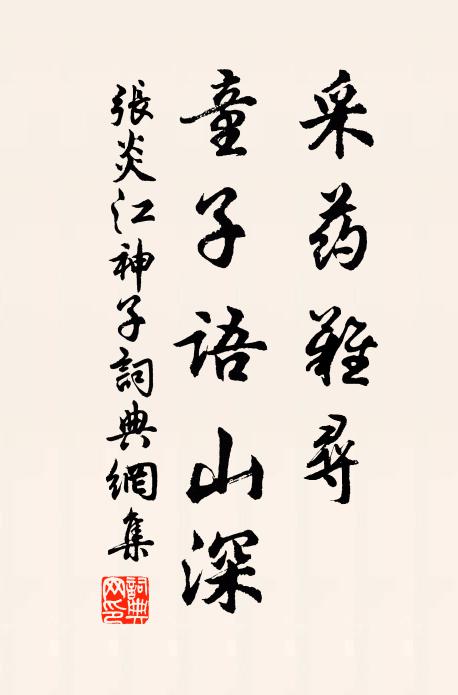 采药難尋
童子語山深
張炎江神子詞典網集
詞典网印